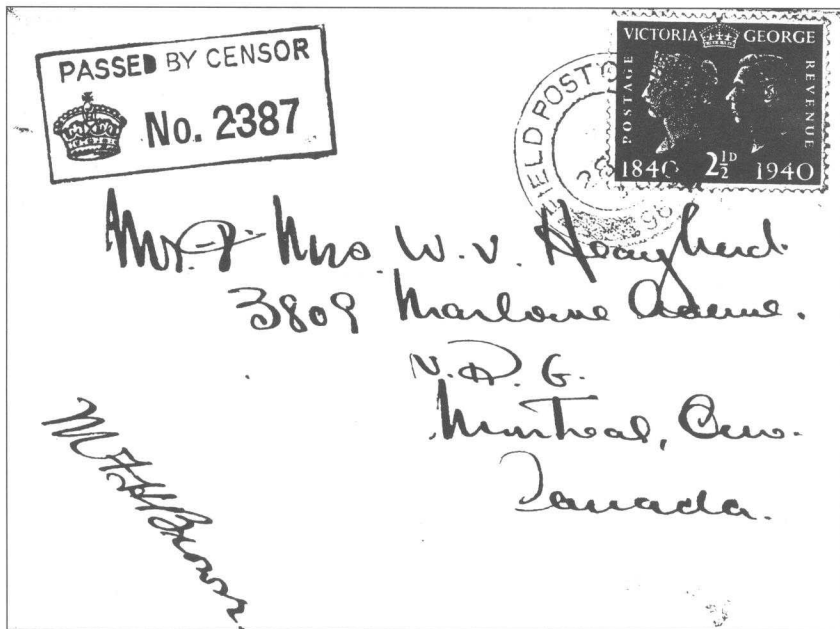 PASSED BY CENSOR
No. 2387
VICTORIA GEORGE
POSTAGE
REVENUE
1840 2½D 1940
FIELD POST O
28
Mr. & Mrs. W. V.
3809 Marlowe Avenue.
N. D. G.
Montreal, Que.
Canada.
Brown